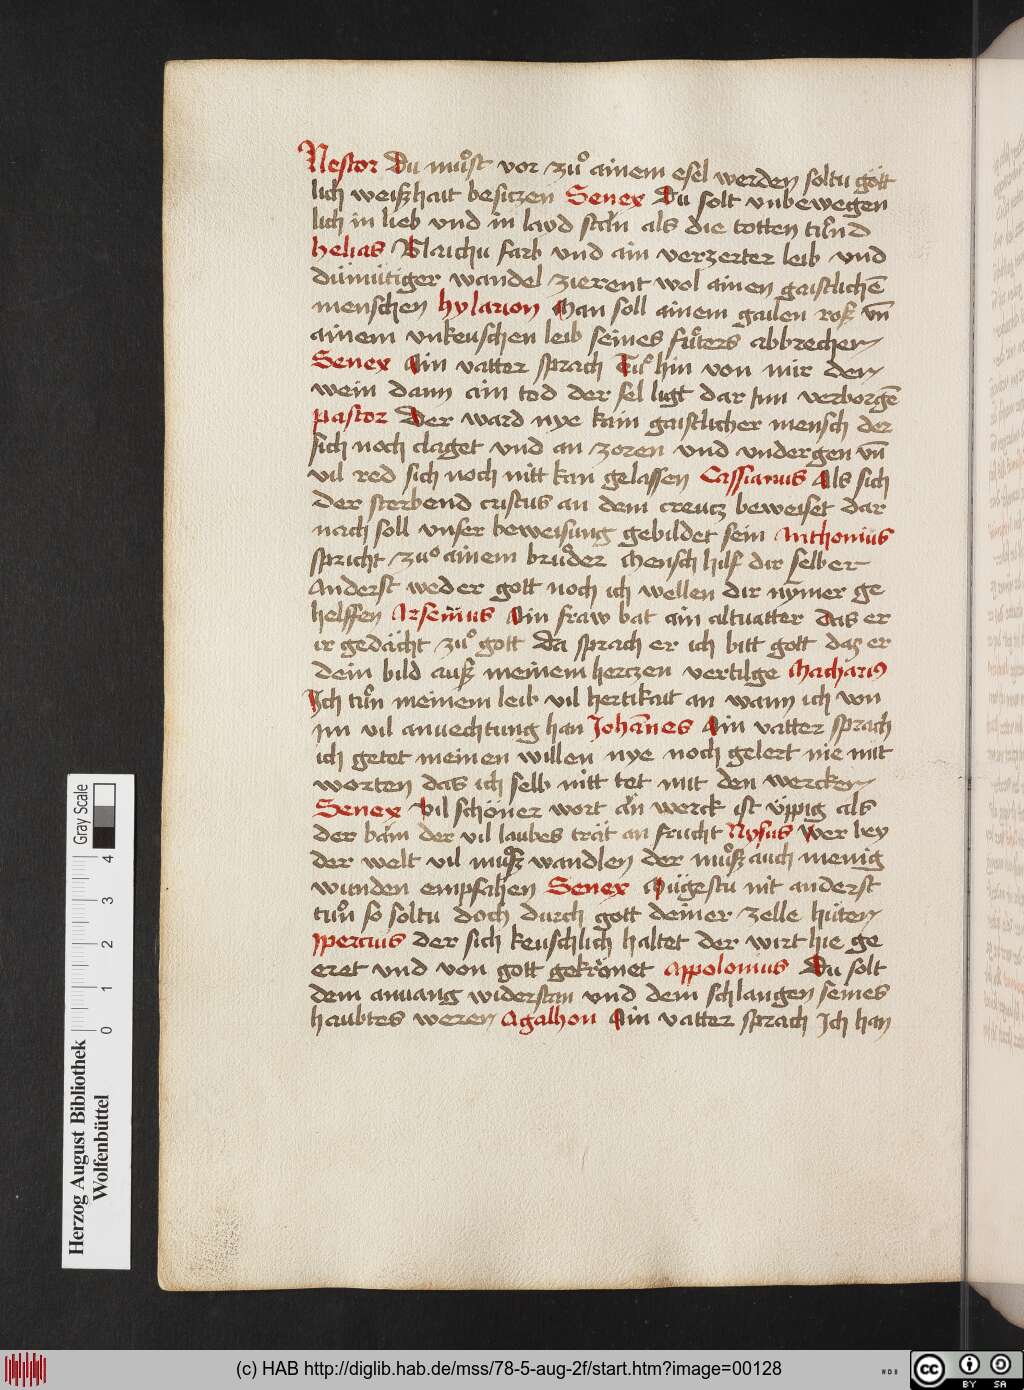 Nestor Du muͦst vor zuͦ ainem esel werden soltu gött
lich weißhait besiczen Senex Du solt vnbewegen
lich in lieb vnd in laid stān als die totten tund
helias Blaichu farb vnd ain verzerter leib vnd
dümütiger wandel zierent wol ainen gaistlichē
menschen hylarion Man soll ainem gailen roß vn̄
ainem vnkeuschen leib seines fuͤters abbrechen
Senex Ain vatter sprach Tuͦ hin von mir den
wein dann ain tod der sel ligt dar jnn verborgē
pastor Der ward nye kain gaistlicher mensch der
sich noch claget vnd an zoren vnd vndergen vn̄
vil red sich noch nitt kan gelassen Cassianus Als sich
der sterbend cristus an dem creucz beweiset dar
nach soll vnser beweisung gebildet sein Anthonius
spricht zuͦ ainem bruͦder Mensch hilf dir selber
Anderst weder gott noch ich wellen dir nym̄er ge
helffen Arsenius Ain fraw bat ain altuatter das er
ir gedächt zuͦ gott Da sprach er ich bitt gott daz er
dein bild auß meinem herczen vertilge Macharius
Ich tuͦn meinem leib vil hertikait an wann ich von
im vil anuechtung han Johānes Ain vatter sprach
ich getet meinen willen nye noch gelert nie mit
worten das ich selb nitt tet mit den wercken
Senex Vil schöner wort ān werck ist üppig als
der bām der vil laubes trät an frucht Nysus Wer bey
der welt vil muͦß wandlen der muͦß auch menig
wunden empfahen Senex Mügestu nit anderst
tuͦn so soltu doch durch gott deiner zelle hüten
Ipercius der sich keuschlich haltet der wirt hie ge
eret vnd von gott gekrönet Appolonius Du solt
dem anuang widerstan vnd dem schlangen seines
haubtes weren Agathon Ain vatter sprach Ich han
Gray Scale
4
3
2
1
0
Herzog August Bibliothek
Wolfenbüttel
(c) HAB http://diglib.hab.de/mss/78-5-aug-2f/start.htm?image=00128
cc
BY SA